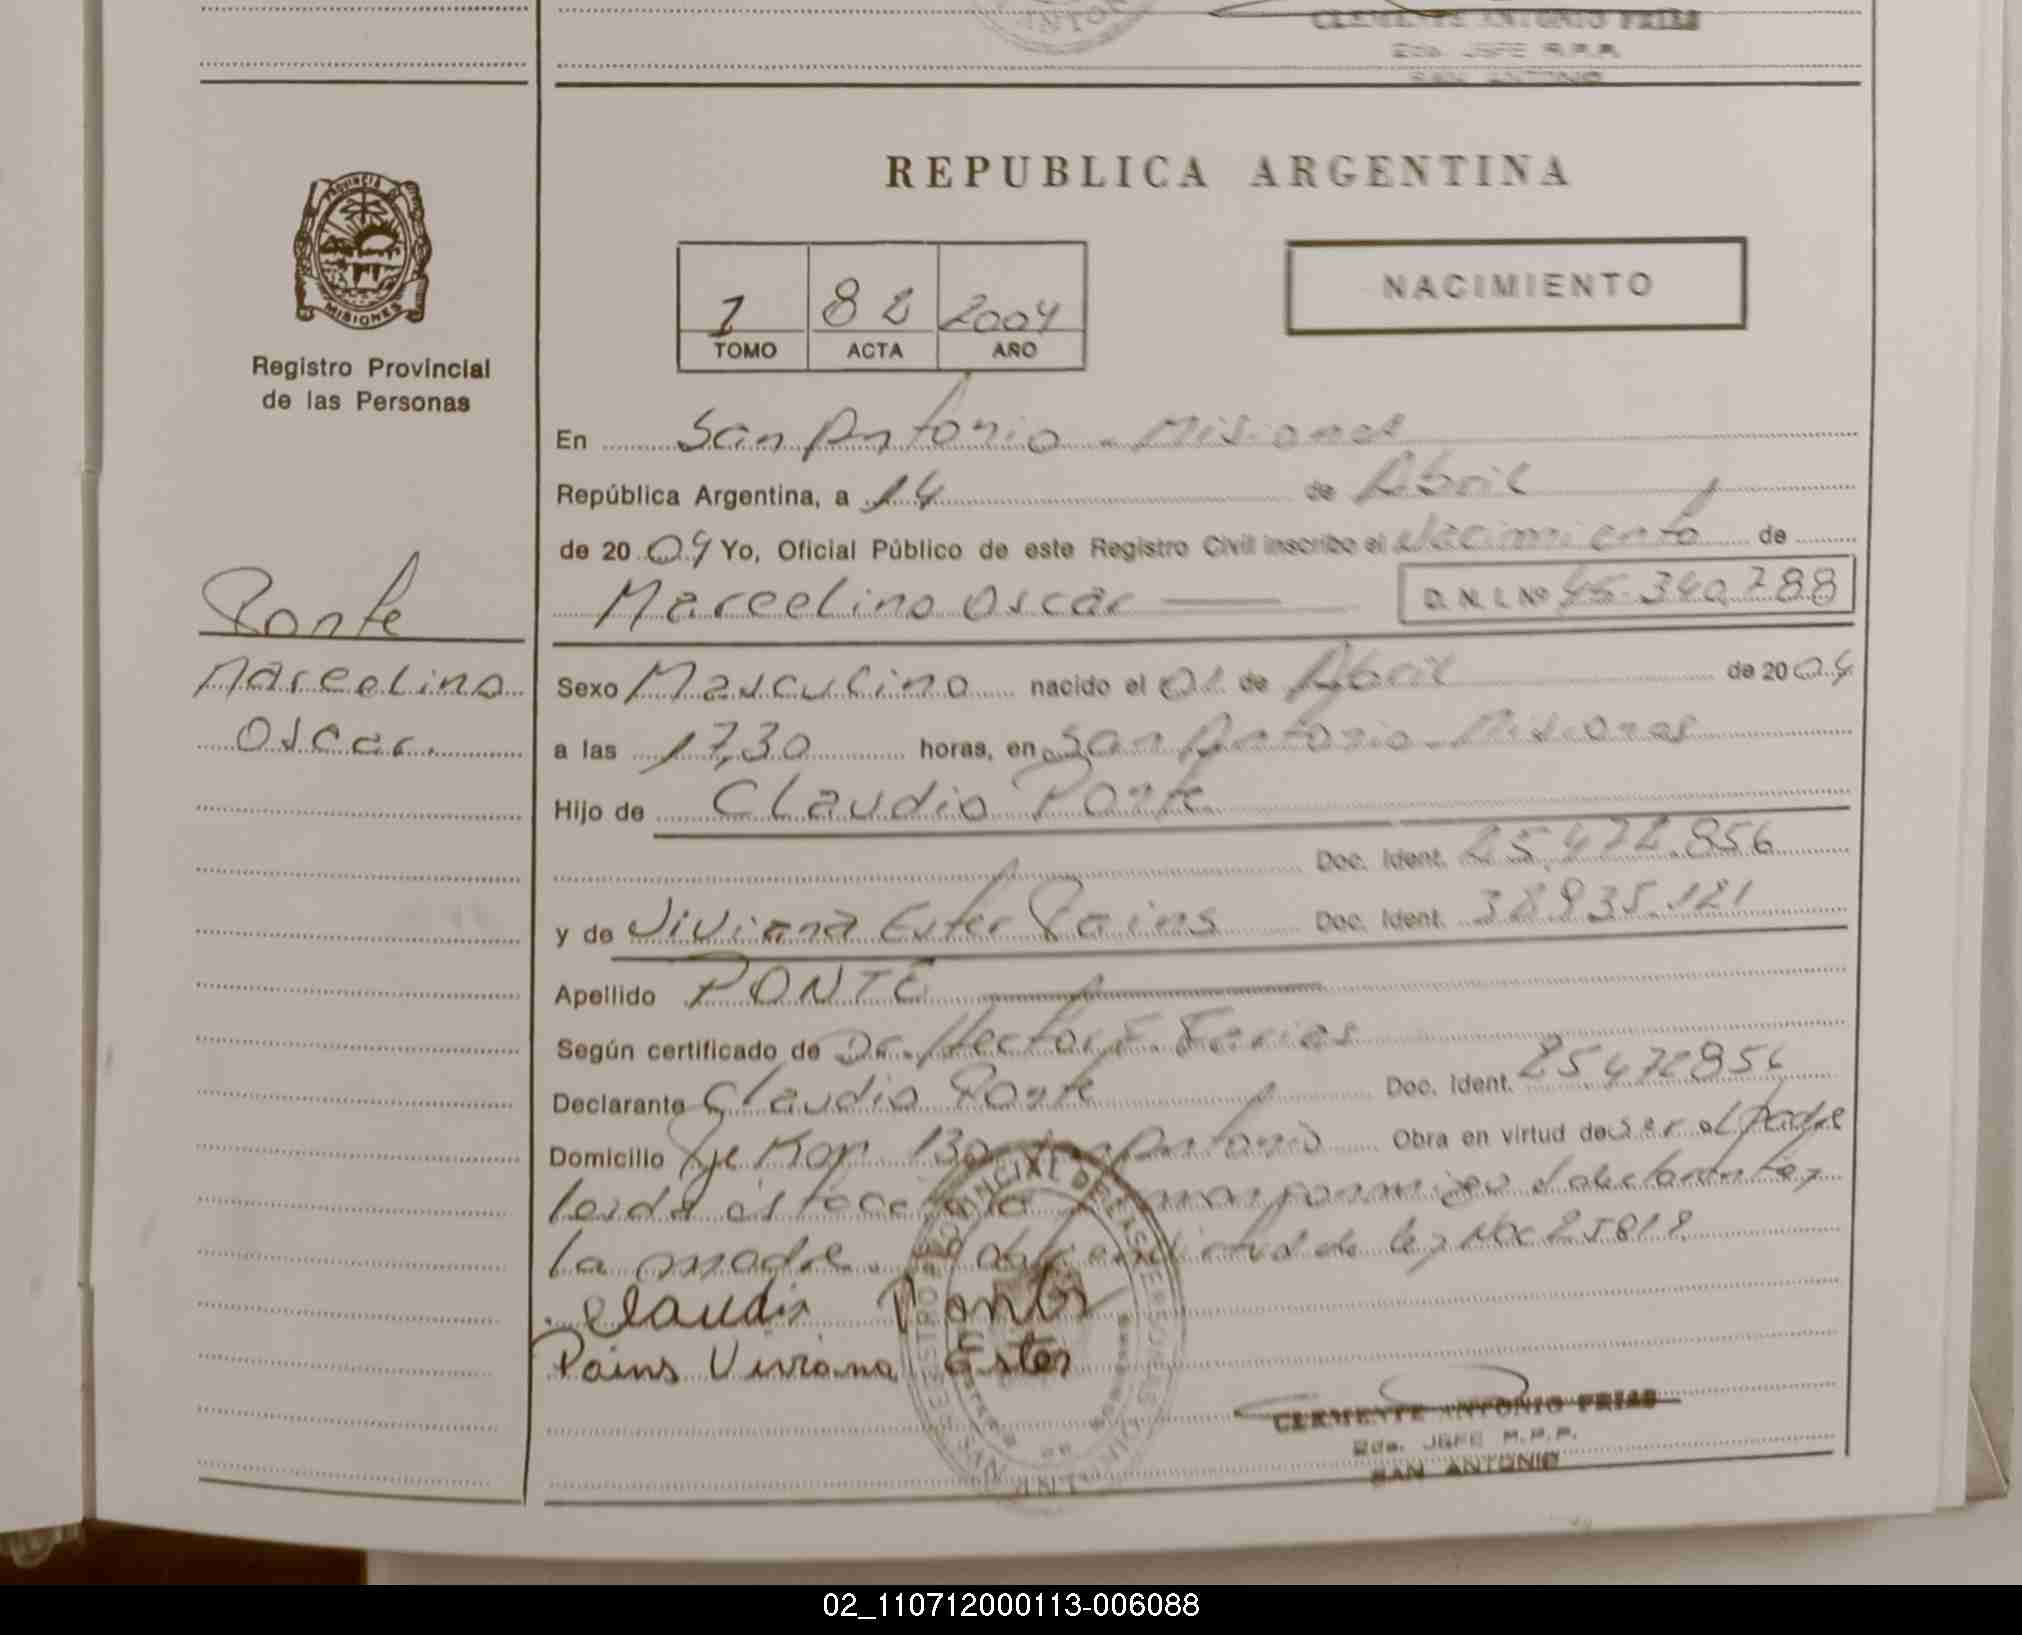 CLEMENTE ANTONIO FRIAS
SAN ANTONIO
PROVINCIA DE
MISIONES
Registro Provincial
de las Personas
Ponte
Marcelino
Oscar.
REPUBLICA ARGENTINA
1 82 2004
TOMO ACTA AÑO
NACIMIENTO
En San Antonio - Misiones
República Argentina, a 14 de Abril
de 2004 Yo, Oficial Público de este Registro Civil inscribo el Nacimiento de
Marcelino Oscar D. N. I. Nº 45.340.788
Sexo Masculino nacido el 01 de Abril de 2004
a las 17,30 horas, en San Antonio - Misiones
Hijo de Claudio Ponte
Doc. Ident. 25.472.856
y de Viviana Ester Pains Doc. Ident. 38.935.121
Apellido PONTE
Según certificado de Dr. Hector F. Farias
Declarante Claudio Ponte Doc. Ident. 25472856
Domicilio San Antonio Obra en virtud de ser el padre
leida el declarante y
la madre. de ley Nº 25818
Claudio Ponte
Pains Viviana Ester
CLEMENTE ANTONIO FRIAS
SAN ANTONIO
02_110712000113-006088